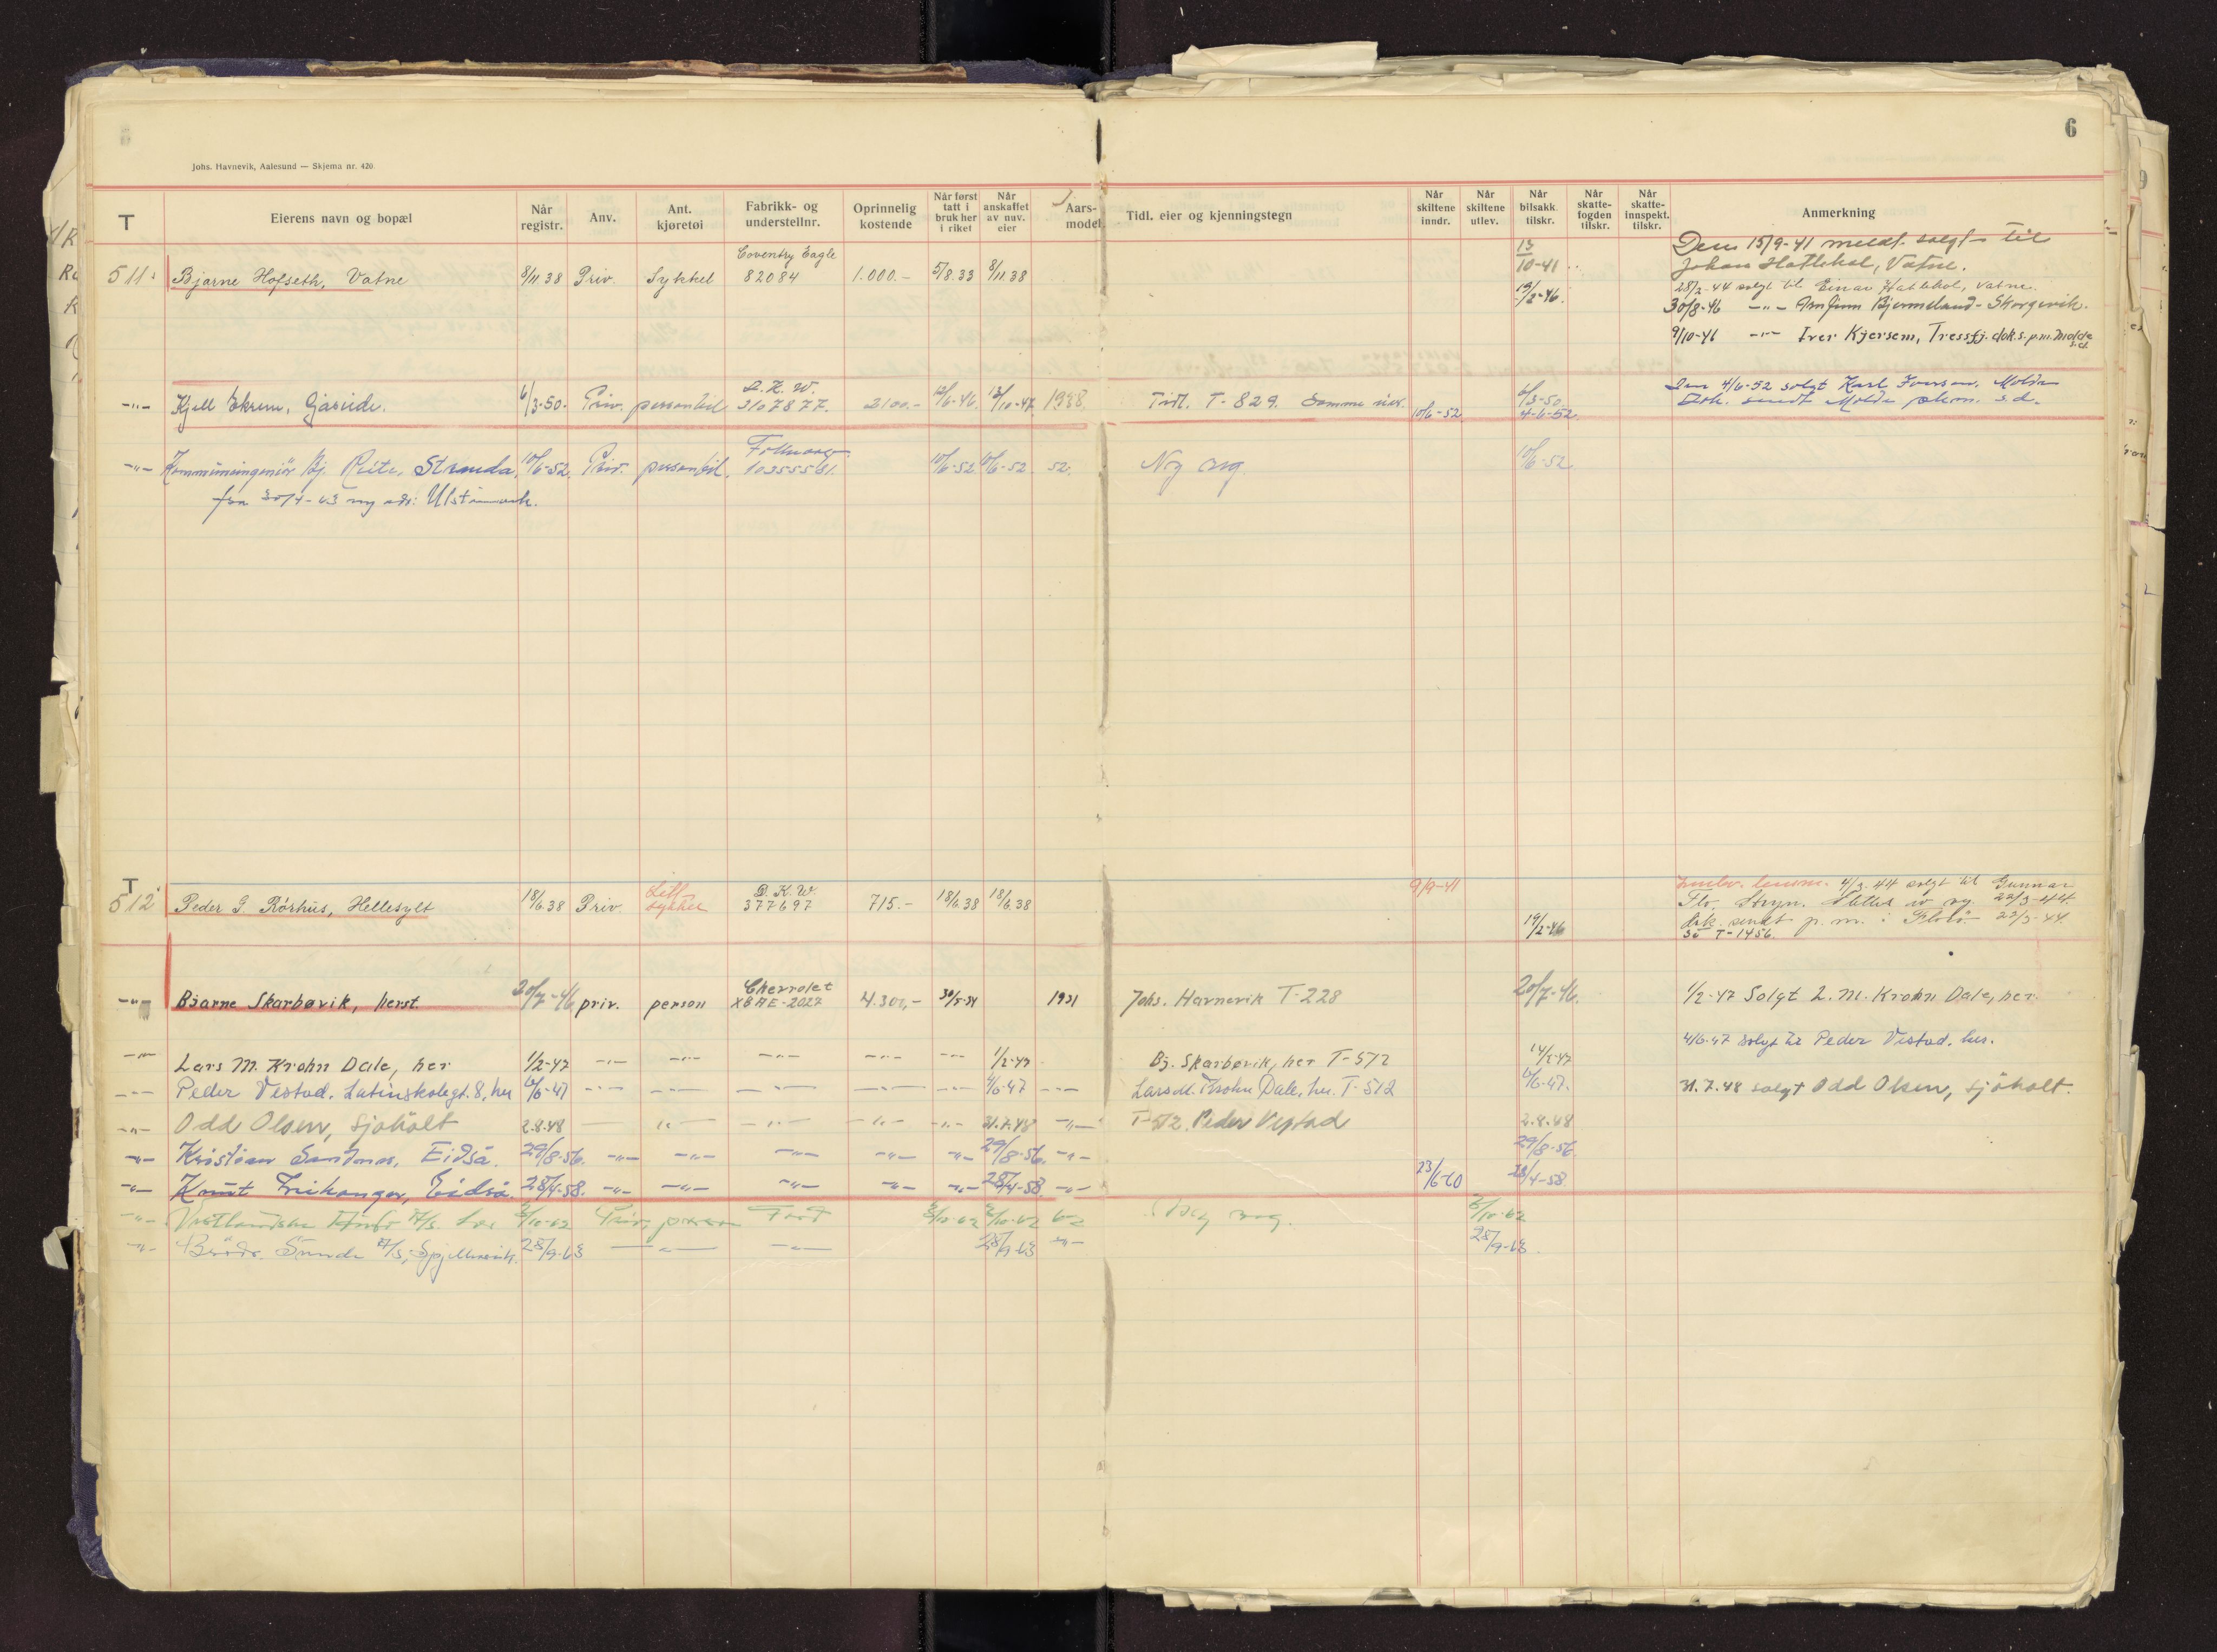 6
Johs. Havnevik, Aalesund — Skjema nr. 420
T | Eierens navn og bopæl | Når registr. | Anv. | Ant. kjøretøi | Fabrikk- og understellnr. | Oprinnelig kostende | Når først tatt i bruk her i riket | Når anskaffet av nuv. eier | Aars-model | Tidl. eier og kjenningstegn | Når skiltene inndr. | Når skiltene utlev. | Når bilsakk. tilskr. | Når skatte-fogden tilskr. | Når skatte-innspekt. tilskr. | Anmerkning
511 Bjarne Hofseth, Vatne 8/11.38 Priv. Sykkel Coventry Eagle 82084 1.000.- 5/8.33 8/11.38 13/10-41 Den 15/9-41 meldt solgt til
Johan Hatlehol, Vatne.
19/2-46. 28/2-44 solgt til Einar Hatlehol, Vatne.
30/8-46 -"- Skorgevik.
9/10-46 -"- Iver Kjersem, Tressfj. dok.s. p.m. Molde s.d.
-"- Kjell Ekrem, 6/3-50. Priv. personbil D.K.W. 3107877. 2100.- 12/6-46. 13/10-47 1938 Tidl. T-829. Samme eier. 10/6-52 6/3-50. 4-6-52. Den 4/6-52 solgt Karl Molde
Dok. sendt Molde s.d.
-"- Kommuneingeniør Bj. Reite, Stranda, 10/6-52. Priv. personbil. 10355561. 10/6-52 10/6-52 52. Ny vog. 10/6-52
fra 30/4-63 ny adr:
T
512 Peder G. Rörhus, Hellesylt 18/6.38 Priv. Lett sykkel D.K.W. 377697 715.- 18/6.38 18/6.38 9/9-41 4/3.44 solgt til Gunnar
Flo, Stryn. 22/3-44
19/2-46 dok. sendt p.m. i Florö 22/3-44.
Se T-1456.
-"- Bjarne Skarbøvik, herst. 20/7-46 priv. person Chevrolet XBAE-2027 4.300,- 30/5-34 1931 Johs. Havnevik T-228 20/7-46. 1/2-47 Solgt L.M. Krohn Dale, her.
4/6.47 solgt til Peder Vestad, her.
-"- Lars M. Krohn Dale, her 1/2-47 -"- -"- -"- -"- -"- 1/2-47 Bj. Skarbøvik, her T-512 14/2-47
-"- Peder Vestad, Latinskolegt. 8, her -"- -"- -"- -"- -"- -"- Lars M. Krohn Dale, her. T-512 31.7.48 solgt Odd Olsen, Sjöholt.
-"- Odd Olsen, Sjöholt 2.8.48 -"- -"- -"- -"- 31.7.48 -"- T-512 Peder Vestad 2.8.48
-"- Kristian Sandnes, Eidså. 29/8-56. -"- -"- -"- -"- -"- 29/8-56. -"- 29/8-56.
-"- Knut Eidså. 28/4-58. -"- -"- -"- -"- -"- 28/4-58. -"- 23/6-60 28/4-58
-"- Vestlandske A/S. her 2/10-62 Priv. person Ford 2/10-62 2/10-62 62 Ny vog. 2/10-62
-"- Brödr. Sunde A/S, Spjelkavik. 28/9-63 -"- -"- 28/9-63 -"- 28/9-63.